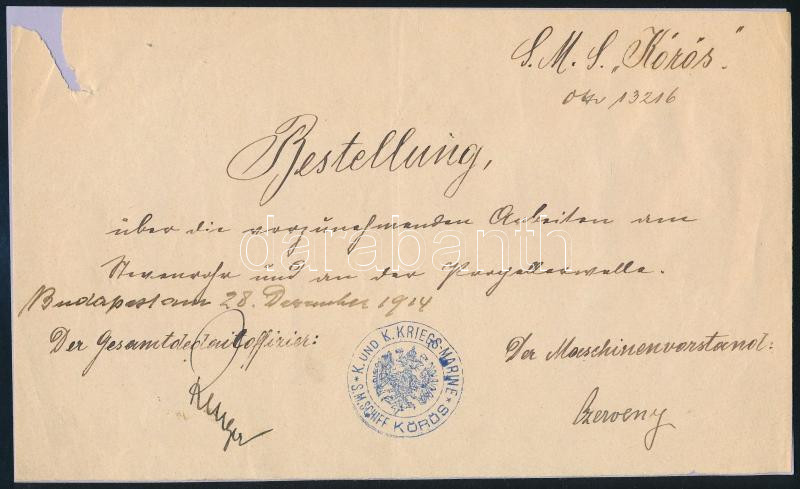 S. M. S. „Körös".
13216
Bestellung,
über die vorzunehmenden Arbeiten am
Stevenrohr und an der Propellerwelle.
Budapest am 28. Dezember 1914
Der Gesamtdedailoffizier:
Der Maschinenvorstand:
Czerveny
K. UND K. KRIEGS-MARINE
* S. M. SCHIFF KÖRÖS *
darabanth